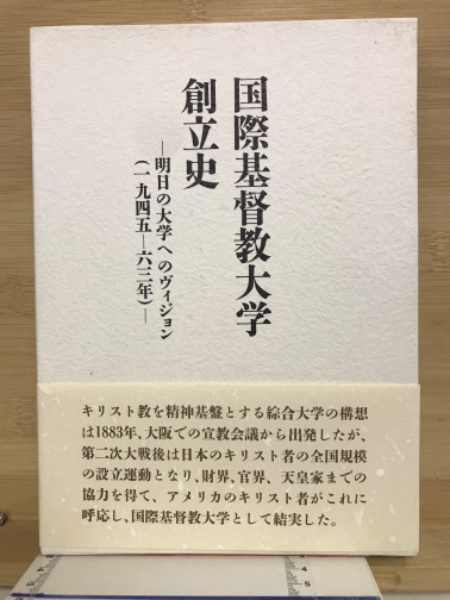 国際基督教大学
創立史
―明日の大学へのヴィジョン
(一九四五―六三年)―
キリスト教を精神基盤とする綜合大学の構想
は1883年、大阪での宣教会議から出発したが、
第二次大戦後は日本のキリスト者の全国規模
の設立運動となり、財界、官界、天皇家までの
協力を得て、アメリカのキリスト者がこれに
呼応し、国際基督教大学として結実した。